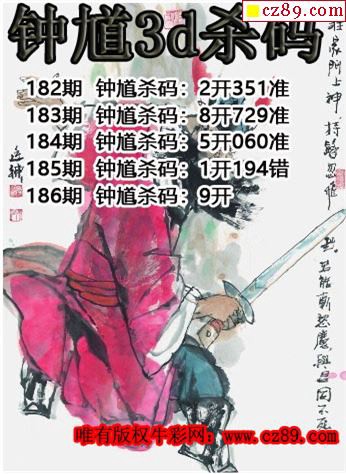 cz89.com
钟馗3d杀码
182期 钟馗杀码：2开351准
183期 钟馗杀码：8开729准
184期 钟馗杀码：5开060准
185期 钟馗杀码：1开194错
186期 钟馗杀码：9开
唯有版权牛彩网：www.cz89.com